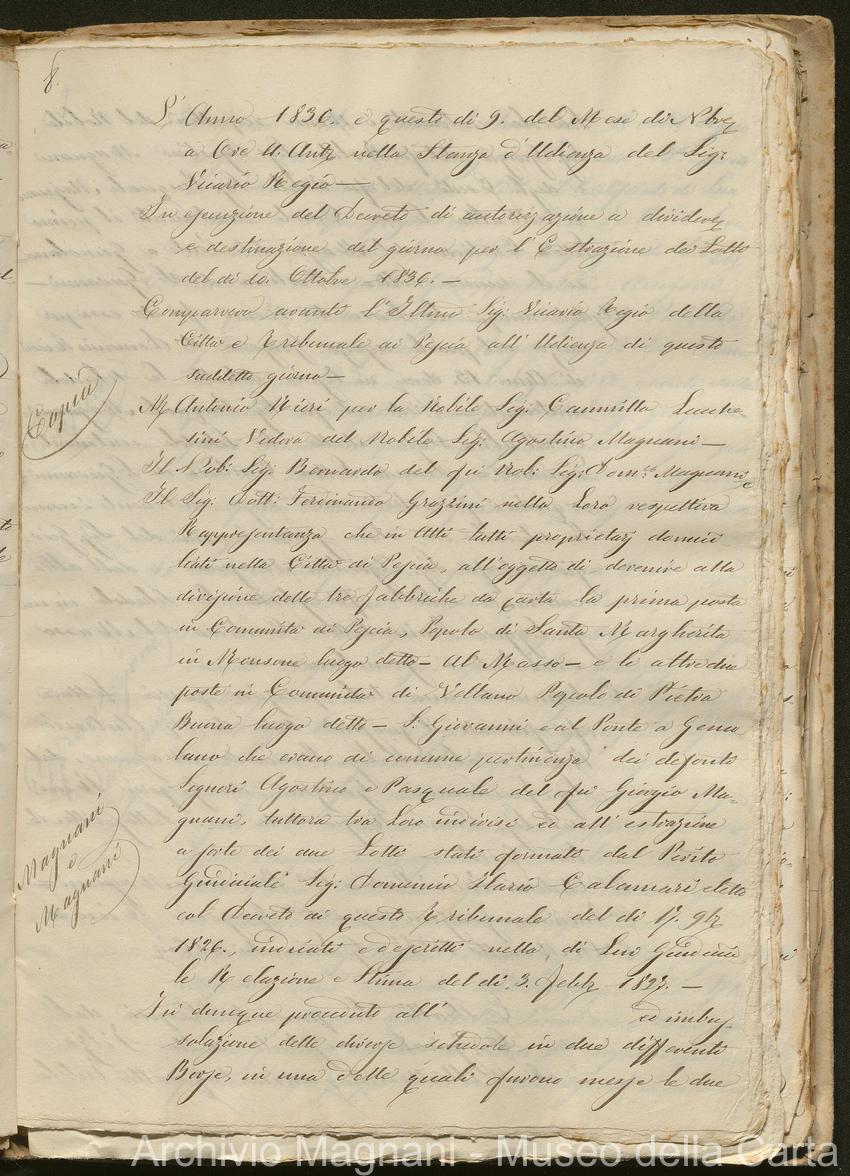 8.
L'Anno 1836. e questo dì 9. del Mese di Nbre
a Ore 11. Antz nella Stanza d'Udienza del Sig:
Vicario Regio —
In esecuzione del Decreto di autorizzazione a dividere
e destinazione del giorno per l'Estrazione dei Lotti
del dì 10. Ottobre 1836. —
Comparvero avanti l'Illmo Sig: Vicario Regio della
Città e Tribunale di Pescia all'Udienza di questo
suddetto giorno —
Copia
Mr Antonio Nieri per la Nobile Sig: Cammilla Lucche-
sini Vedova del Nobile Sig: Agostino Magnani —
Il Nob: Sig: Bernardo del fu Nob: Sig: Dom:co Magnani e
Il Sig: Dott: Ferdinando Grazzini nella Loro respettiva
Rappresentanza che in Atti tutti proprietarj domici
liati nella Città di Pescia, all'oggetto di devenire alla
divisione delle tre fabbriche da carta la prima posta
in Comunità di Pescia, Popolo di Santa Margherita
in Monsone luogo detto — Al Masso — e le altre due
poste in Comunità di Vellano Popolo di Pietra
Buona luogo detto — S. Giovanni e al Ponte a Gemo
lano che erano di comune pertinenza dei defonti
Signori Agostino e Pasquale del fu Giorgio Ma-
gnani, tuttora tra Loro indivisi ed all'estrazione
Magnani
e
Magnani
a sorte dei due Lotti stati formati dal Perito
Giudiciale Sig: Domenico Ilario Calamari eletto
col Decreto di questo Tribunale del dì 17. 9bre
1826., indicati e descritti nella di Lui Giudicia
le Relazione e Stima del dì 3. Febbr 1827. —
Fu dunque proceduto all' ed imbus
solazione delle diverse schedole in due differenti
Borse, in una delle quali furono messe le due
Archivio Magnani - Museo della Carta